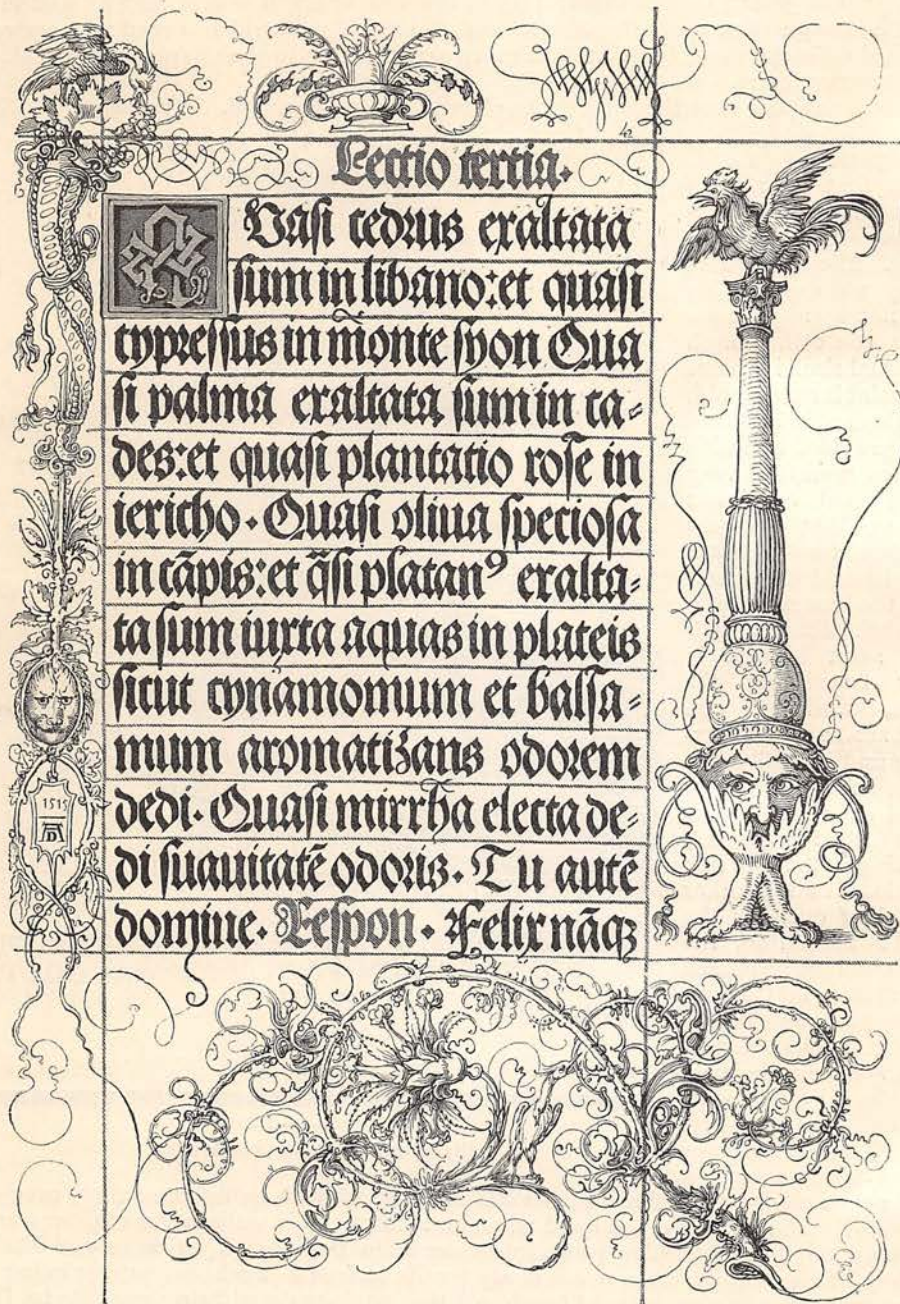 Lectio tertia.
QVasi cedrus exaltata
sum in libano: et quasi
cypressus in monte syon Qua
si palma exaltata sum in ca-
des: et quasi plantatio rose in
iericho. Quasi oliua speciosa
in cāpis: et q̄si platanꝰ exalta-
ta sum iuxta aquas in plateis
sicut cynamomum et balsa-
mum aromatizans odorem
dedi. Quasi mirrha electa de-
di suauitatē odoris. Tu autē
domine. Respon. Felix nāqꝫ
1515
AD
42